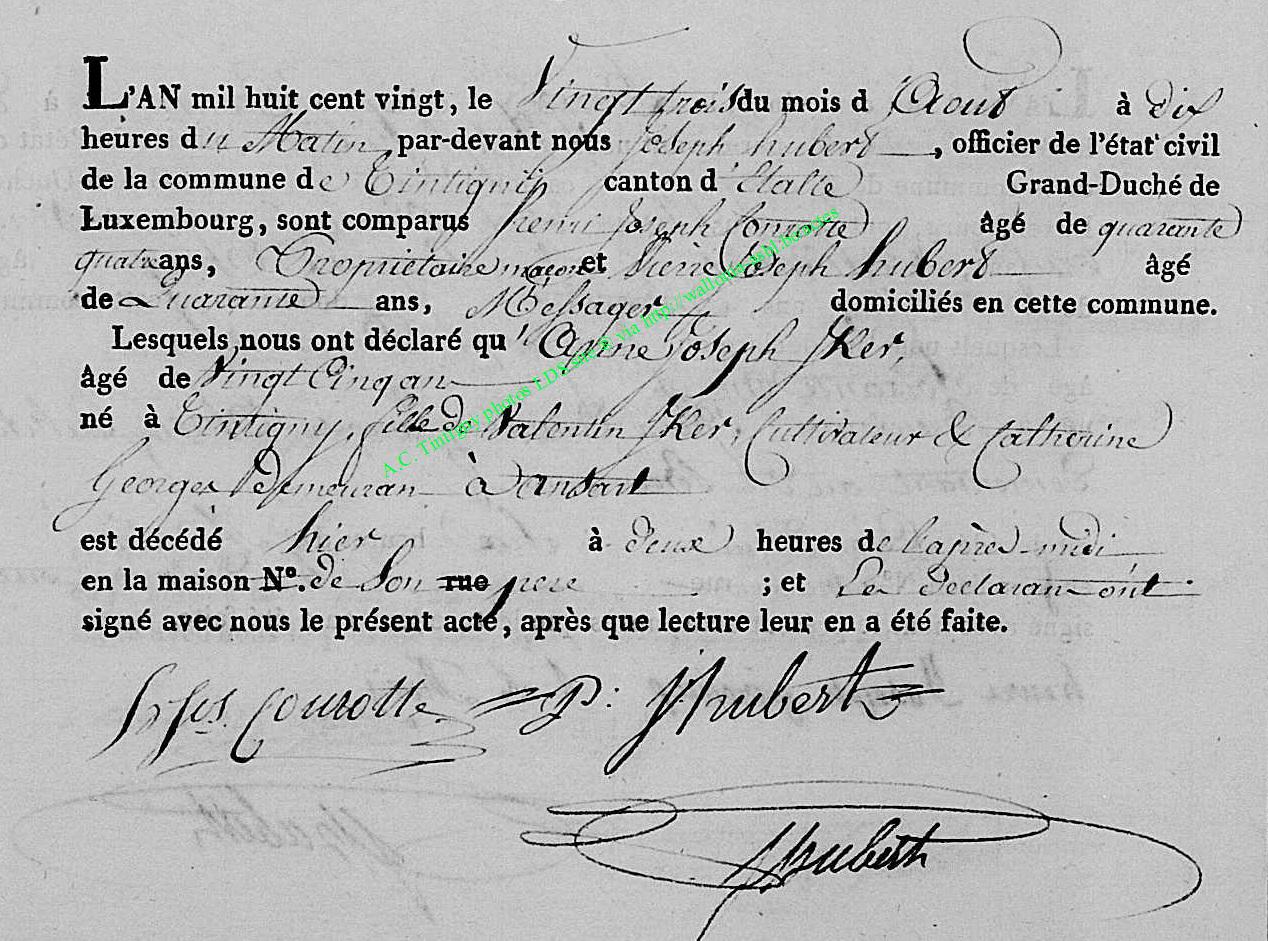 L'AN mil huit cent vingt, le Vingt trois du mois d'Aout à dix
heures du Matin, par-devant nous Joseph hubert, officier de l'état civil
de la commune de Tintigny canton d'Etalle Grand-Duché de
Luxembourg, sont comparus henri Joseph Courotte âgé de quarante
quatre ans, Propriétaire maçon et Pierre Joseph hubert âgé
de Quarante ans, Messager domiciliés en cette commune.
Lesquels nous ont déclaré qu'Anne Joseph JKer
âgé de Vingt Cinq an
né à Tintigny, fille de Valentin JKer, Cultivateur & Catherine
Georges Demeuran à ansart
est décédé hier à deux heures de l'après-midi
en la maison N°. de Son rue pere ; et Les Declarans ont
signé avec nous le présent acte, après que lecture leur en a été faite.
Courotte P: J hubert
J hubert
A.C. Tintigny photos LDS site © via http://wallonia-asbl.be/actes